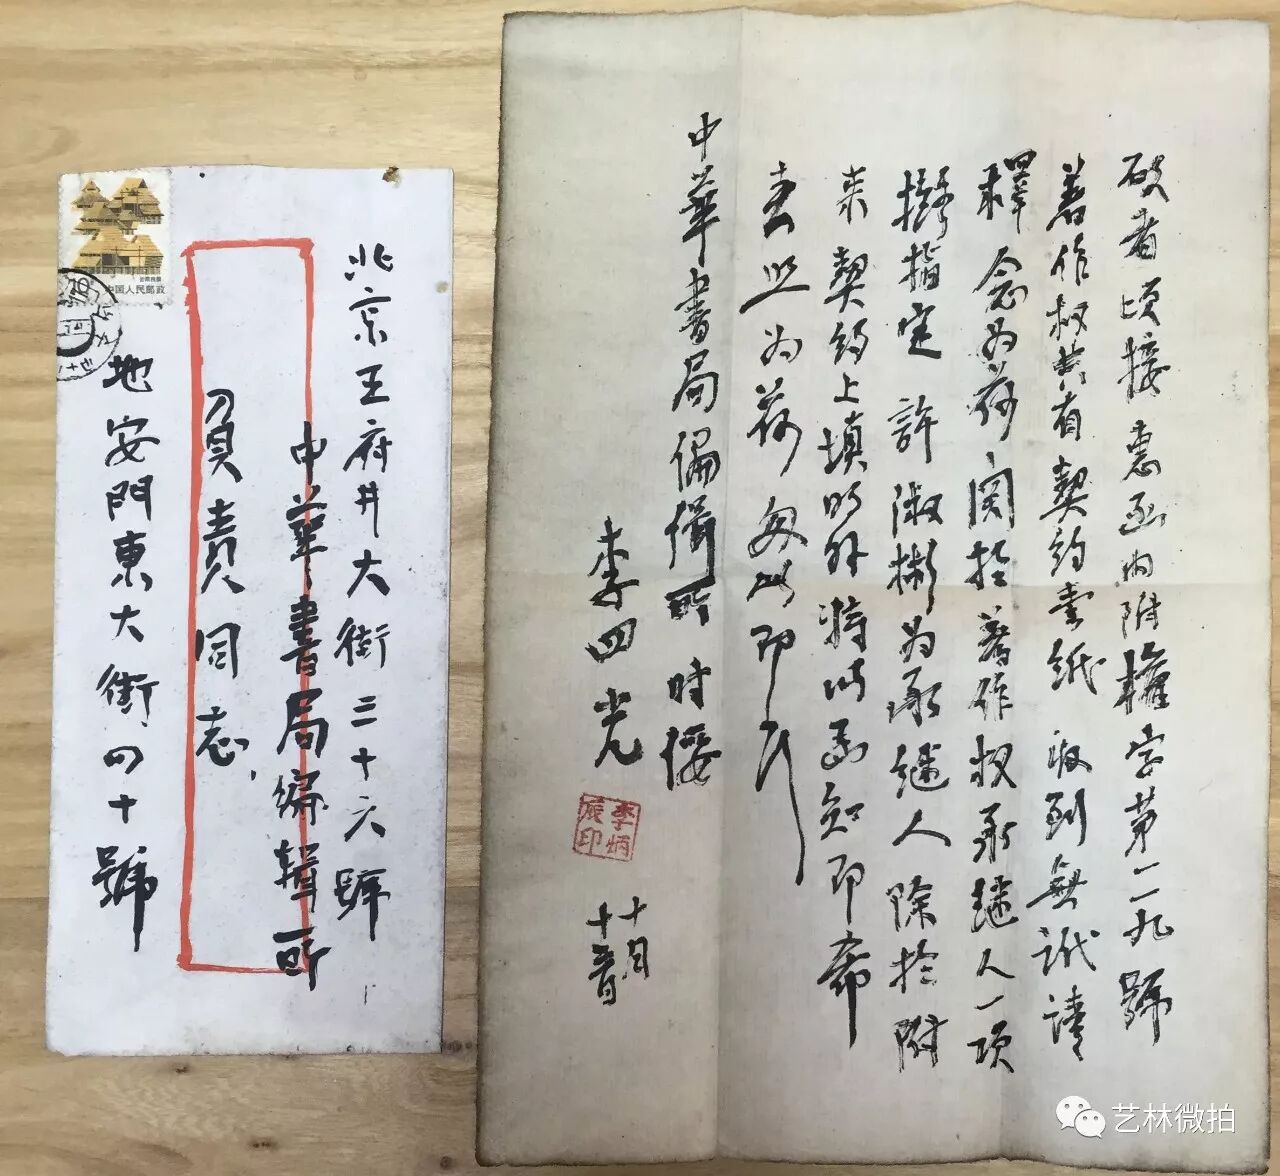 北京王府井大街三十六號
中華書局編輯所
負責同志
地安門東大街四十號
中国人民邮政
啟者頃接 惠函內附權字第二九號
著作权共有契约壹紙 收到無訛 请
釋念为荷 関於著作权承继人一项
擬指定 許淑彬为承继人 除於附
来契约上填明外特此函知即希
查照为荷 匆此即
中華書局编辑所 时绥
李四光
李炳辰印
十月
艺林微拍